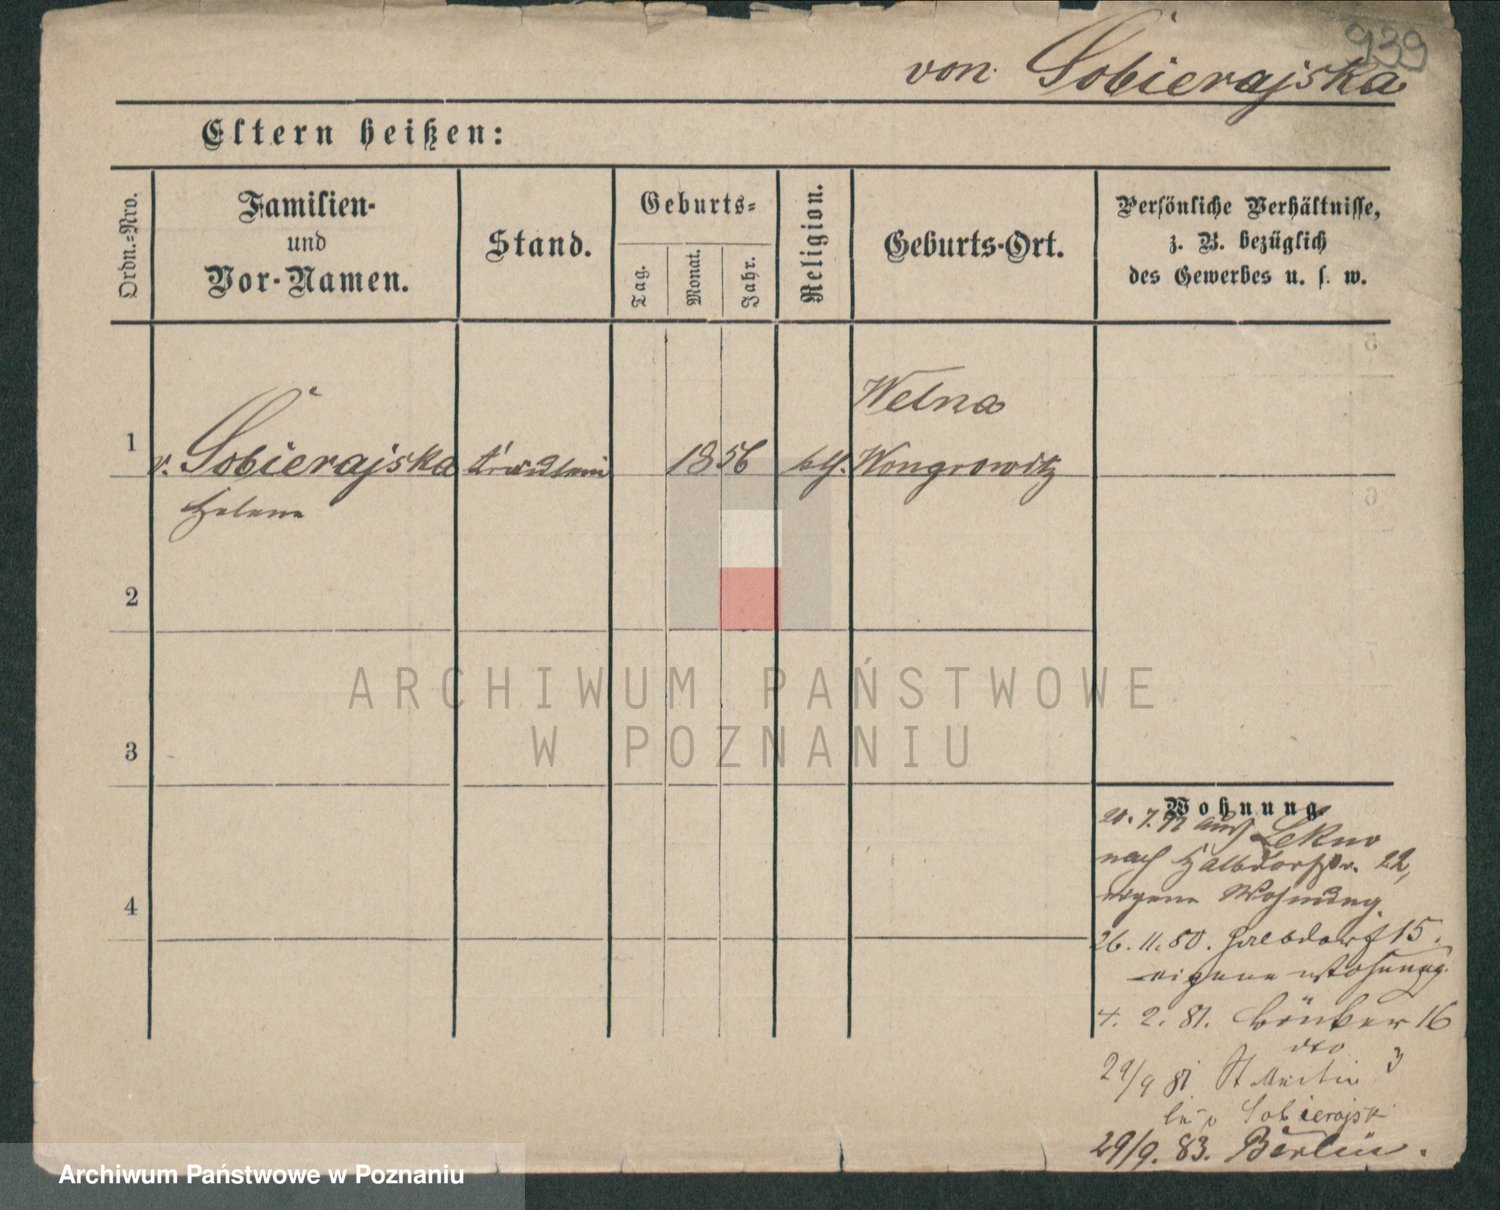 939
von Sobierajska
Eltern heißen:
Ordn.-Nro.
Familien-
und
Vor-Namen.
Stand.
Geburts-
Tag.
Monat.
Jahr.
Religion.
Geburts-Ort.
Persönliche Verhältnisse,
z. B. bezüglich
des Gewerbes u. s. w.
Welna
1
v. Sobierajska
1856
kth. Wongrowitz
Helene
2
ARCHIWUM PAŃSTWOWE
W POZNANIU
3
Wohnung.
20. 7. aus Lekno
nach Halbdorfstr. 22,
eigene Wohnung.
4
26. 11. 80. Halbdorf 15.
eigene Wohnung.
4. 2. 81. 16
dto
29/9 81 St Martin 3
bei v Sobierajsk
29/9. 83. Berlin.
Archiwum Państwowe w Poznaniu